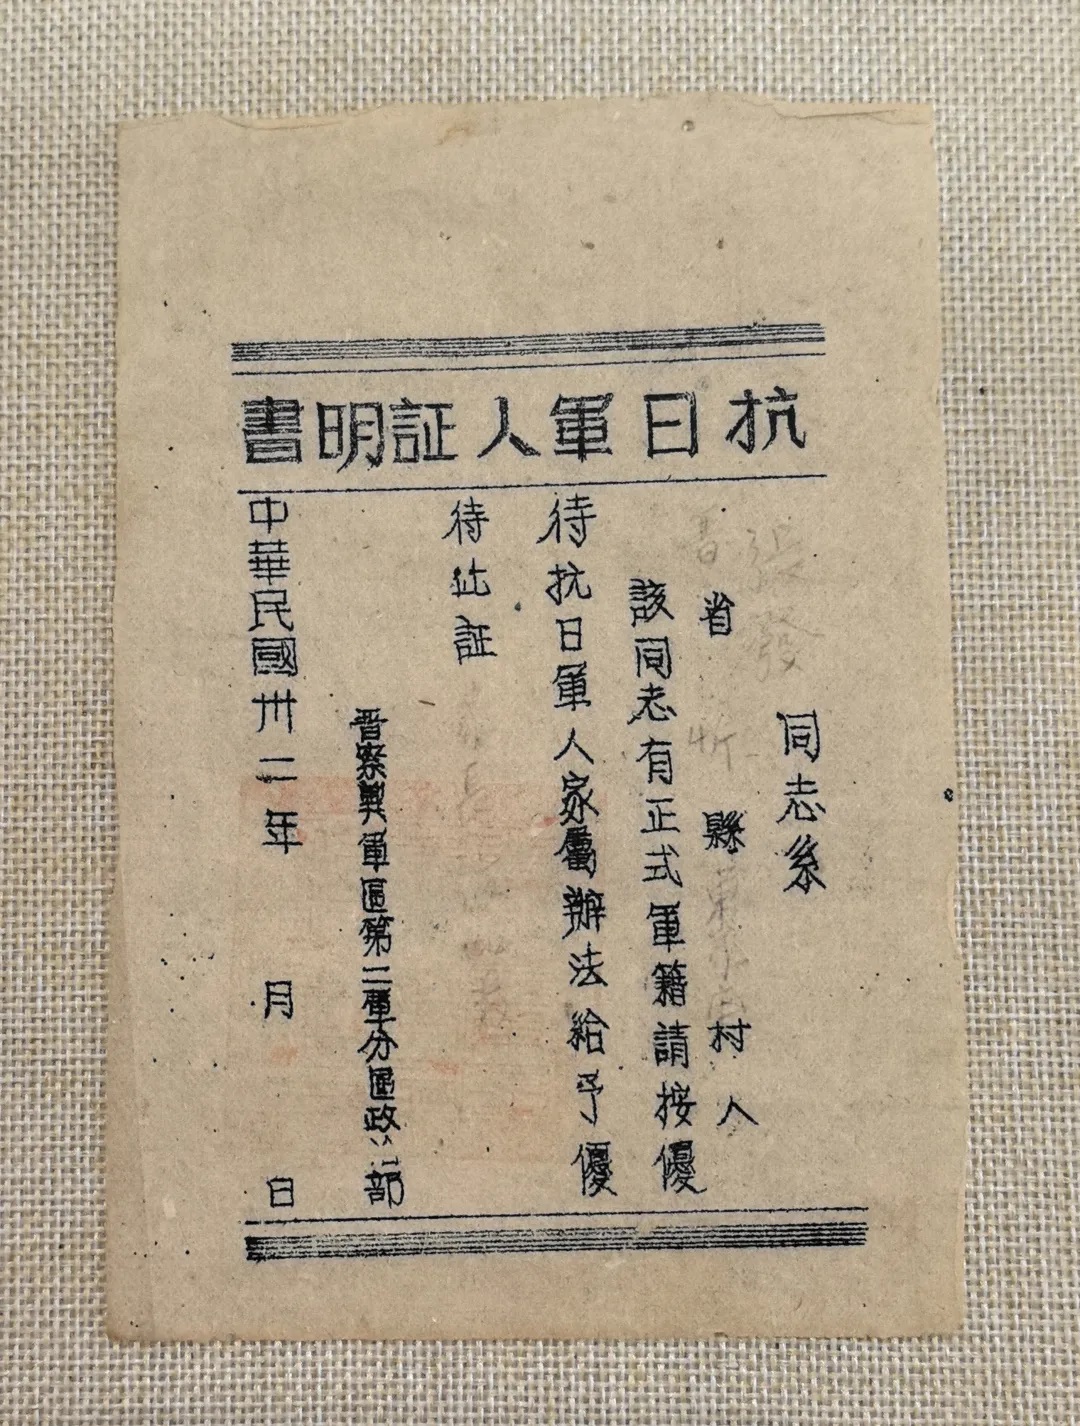 抗日軍人証明書
張發 同志系
晋 省 忻 縣 東 村人
該同志有正式軍籍請按優
待抗日軍人家屬辦法給予優
待此証
晋察冀軍區第二軍分區政治部
中華民國卅二年 月 日